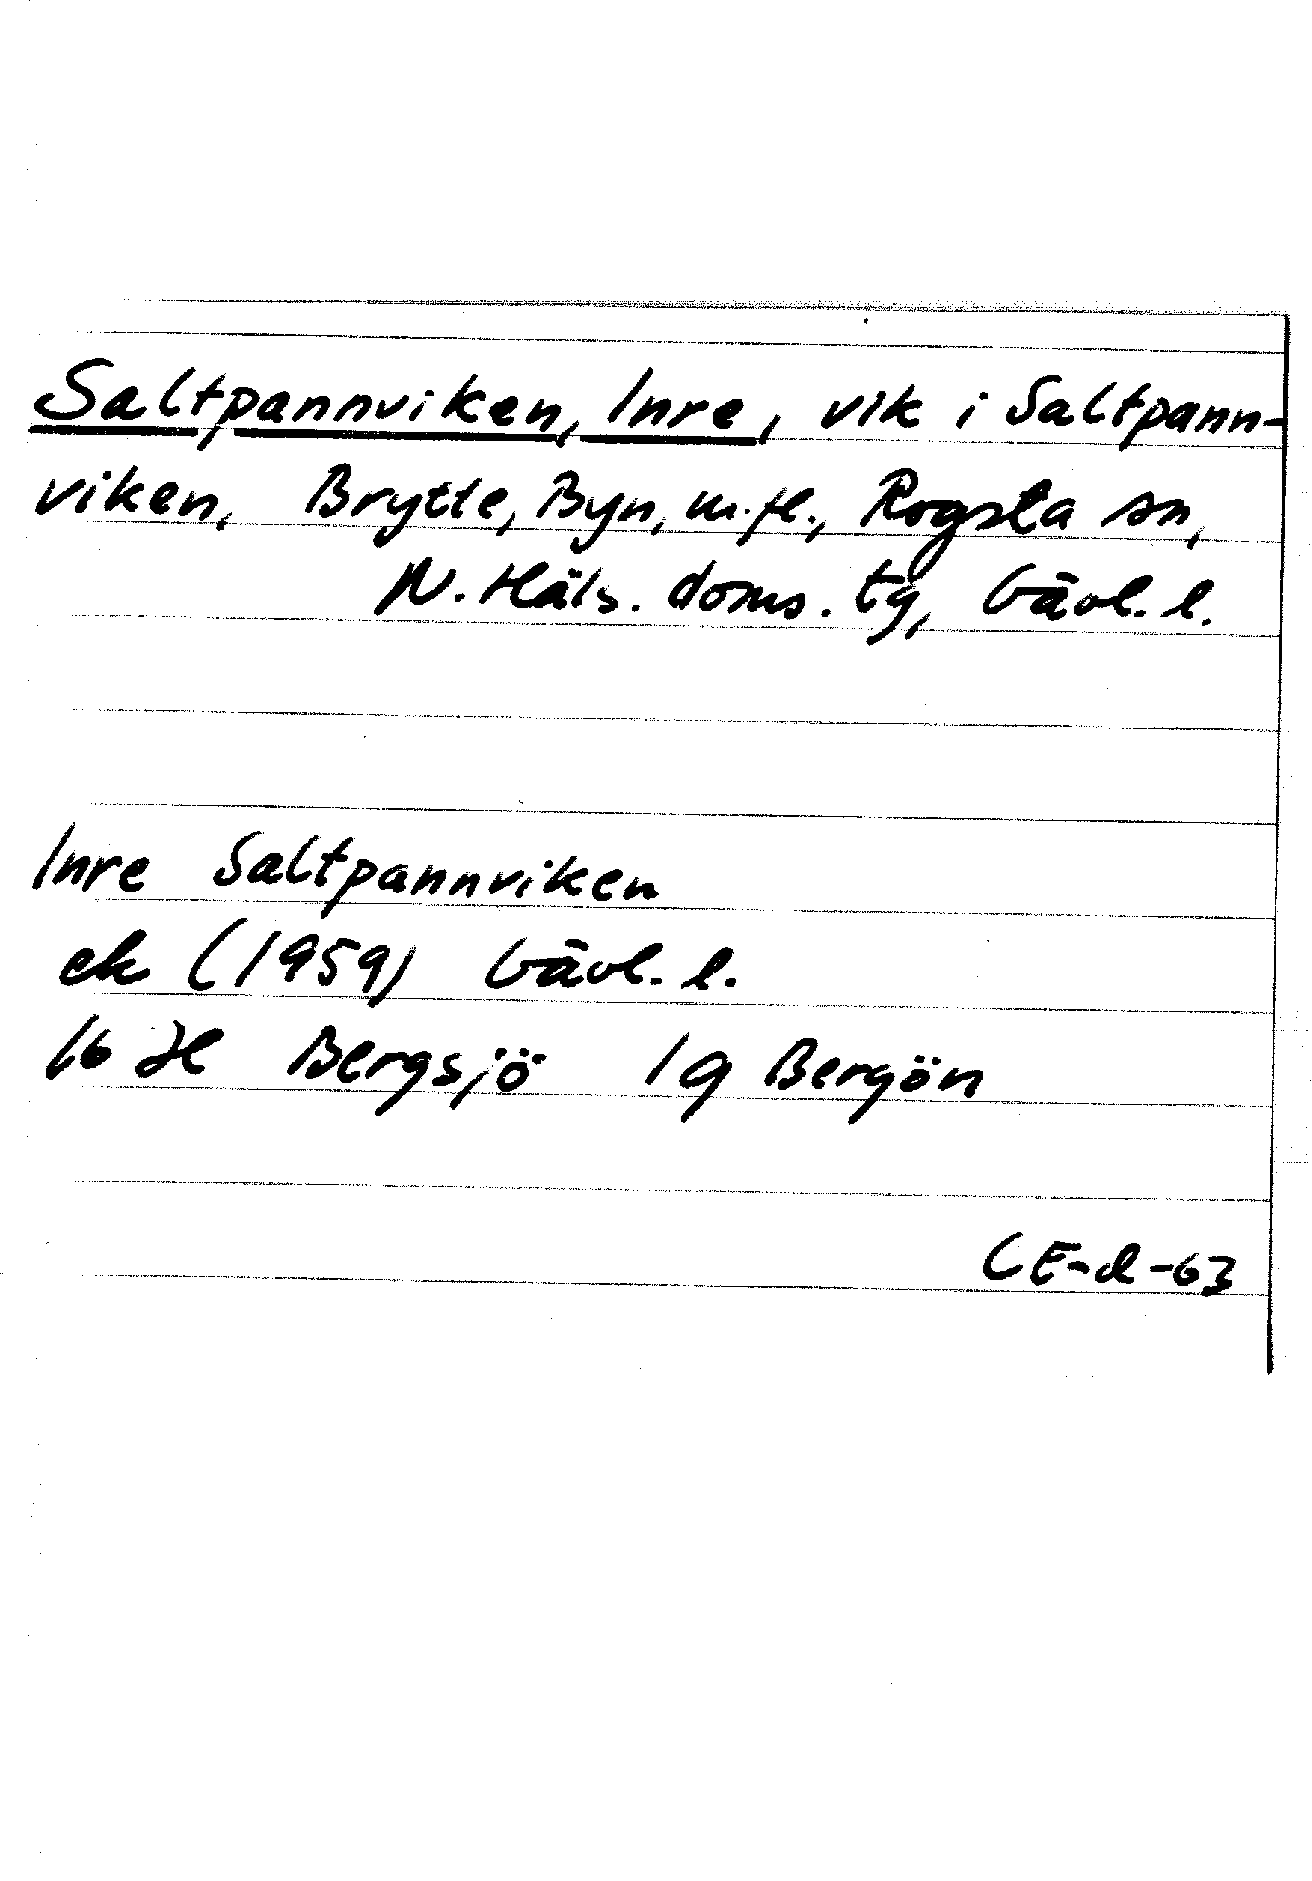 Saltpannviken, Inre, vik i Saltpann-
viken, Brytte, Byn, m.fl., Rogsta sn,
N. Häls. doms. tg, Gävl. l.
Inre Saltpannviken
ek (1959) Gävl. l.
16 H Bergsjö 1g Bergön
CE-d-63